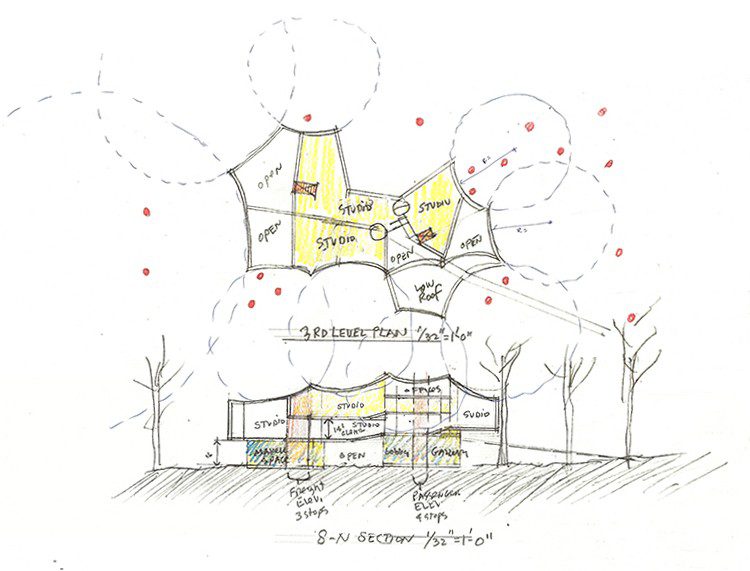 OPEN
STUDIO
STUDIO
OPEN
STUDIO
OPEN
OPEN
LOW
ROOF
3RD LEVEL PLAN 1/32"=1'-0"
OFFICES
STUDIO
STUDIO
14'
STUDIO
SUDIO
SPACE
OPEN
LOBBY
GALLERY
FREIGHT
ELEV.
3 STOPS
PASSENGER
ELEV
4 STOPS
S-N SECTION 1/32"=1'-0"